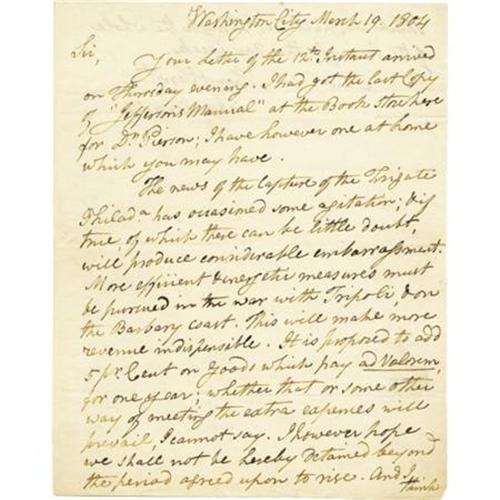 Washington City March 19. 1804
Sir,
Your Letter of the 12th. Instant arrived
on Thursday evening. I had got the last Copy
of "Jefferson's Manual" at the Book Store here
for Dr. Pierson; I have however one at home
which you may have.
The news of the Capture of the Frigate
Philada has occasioned some agitation; & if
true, of which there can be little doubt,
will produce considerable embarrassment.
More efficient & energetic measures must
be pursued in the war with Tripoli, & on
the Barbary coast. This will make more
revenue indispensible. It is proposed to add
5 pr. Cent on Goods which pay ad Valorem,
for one year; whether that or some other
way of meeting the extra expenses will
prevail, I cannot say. I however hope
we shall not be hereby detained beyond
the period agreed upon to rise. And I
think